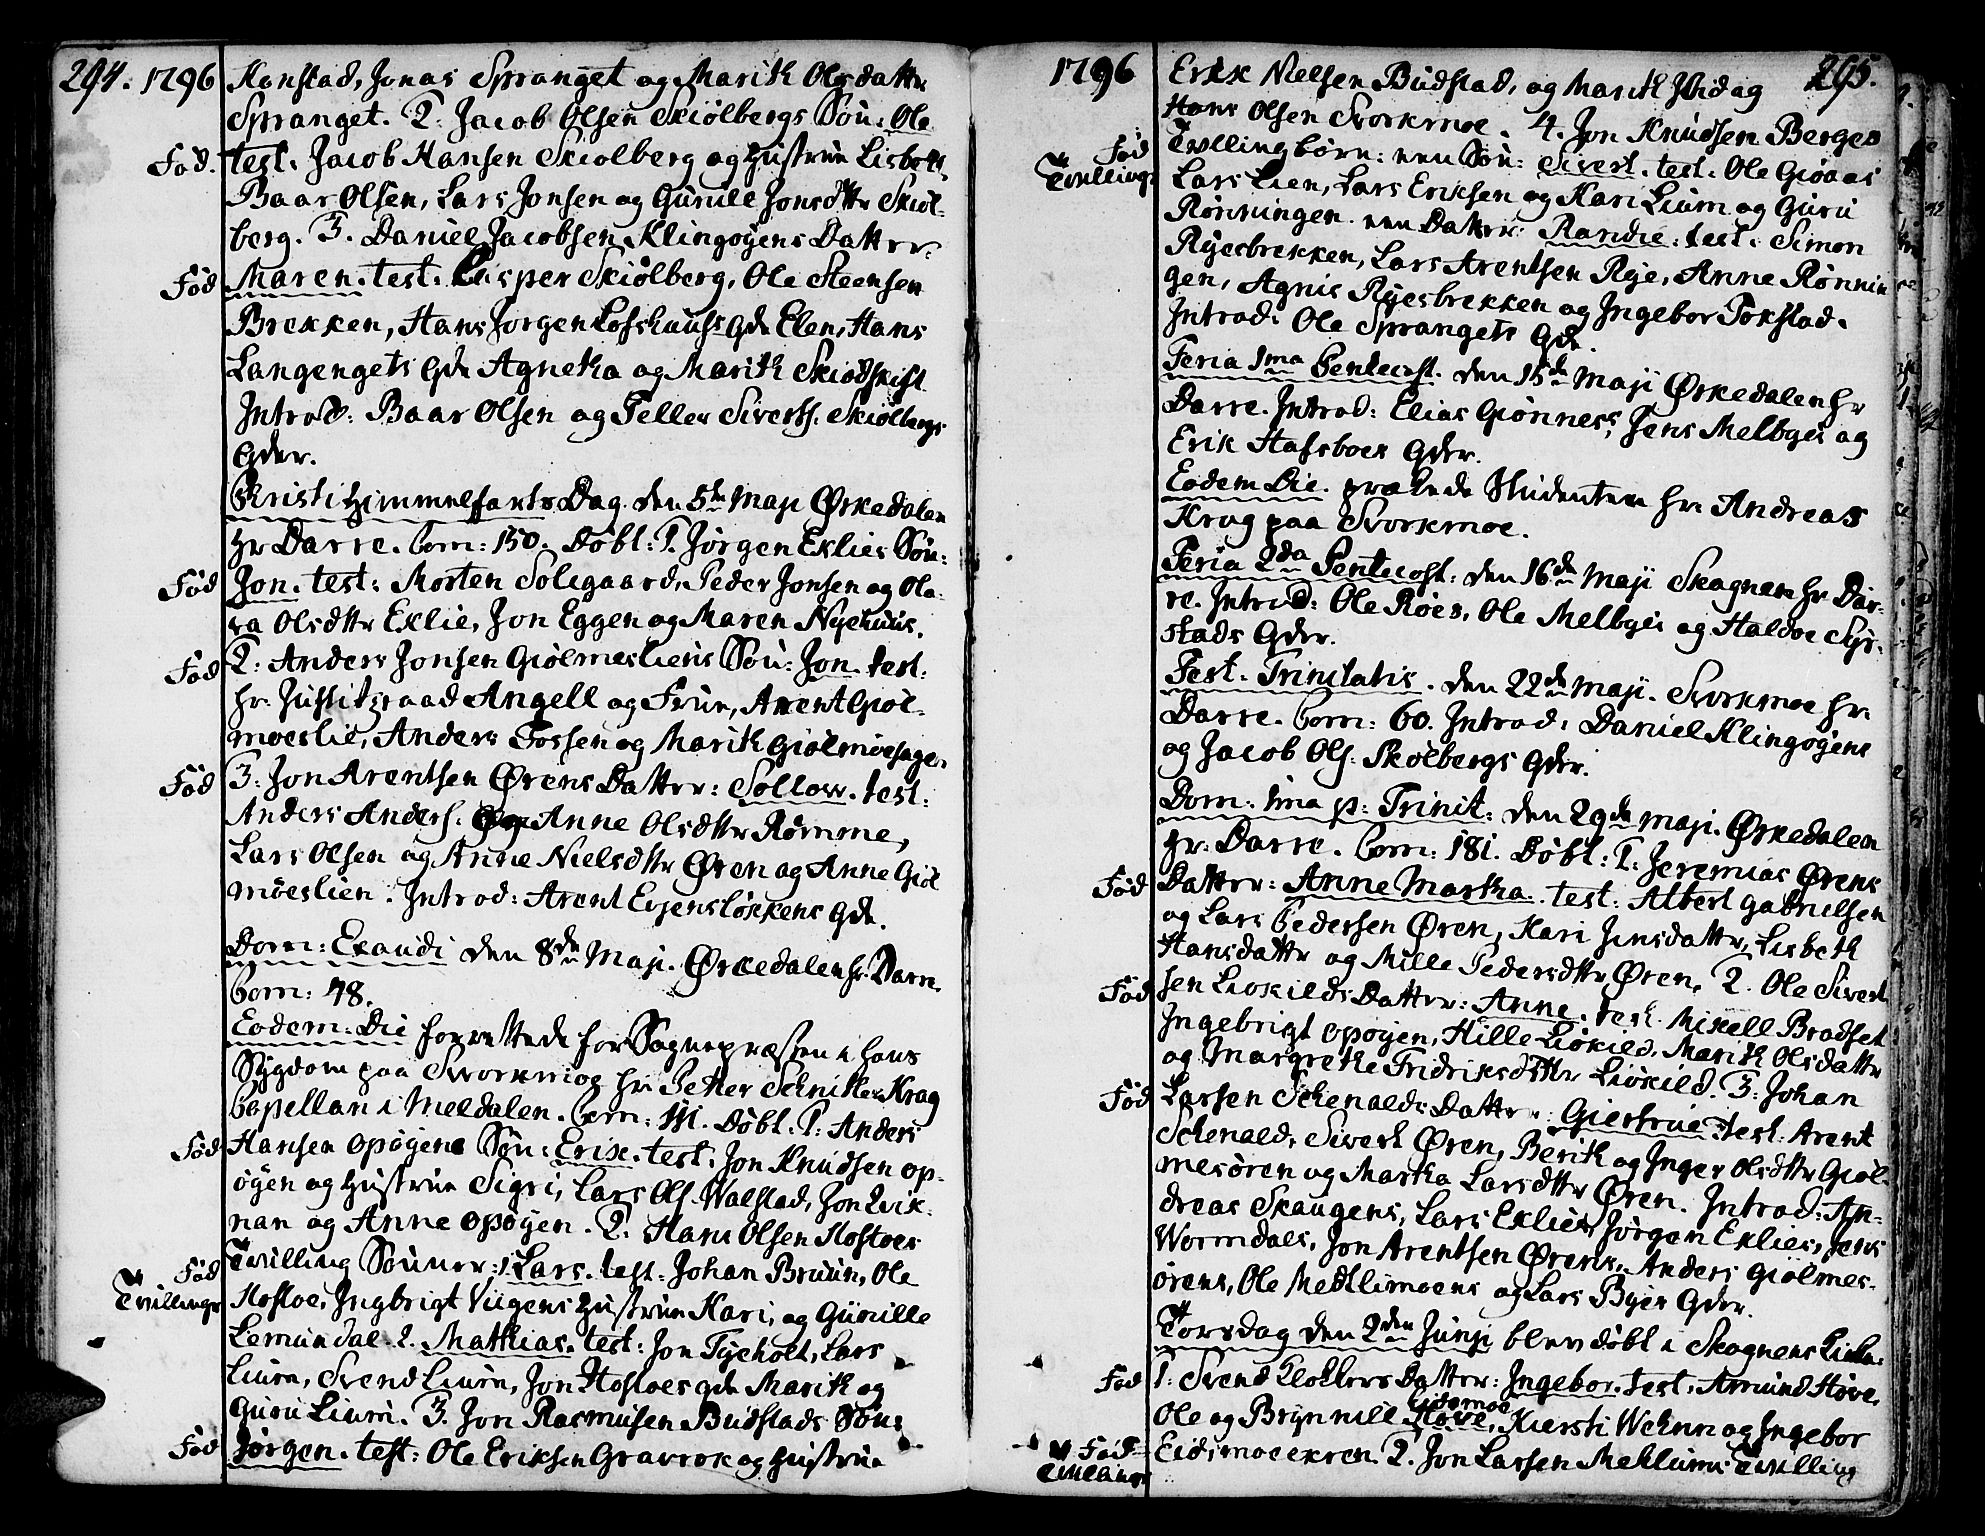 294. 1796
Konstad, Jonas Spranget og Marith Olsdattr
Spranget. 2. Jacob Olsen Skiølbergs Søn: Ole
Fød. test. Jacob Hansen Skiolberg og Hustrue Lisbeth
Baar Olsen, Lars Jonsen og Gunild Jonsdttr Skiøl-
berg. 3. Daniel Jacobsen Klingøyens Datter:
Fød Maren. test. Casper Skiølberg, Ole Steensen
Brekken, Hans Jørgen Lofshuus Gde Elen, Hans
Langengets Gde Agneta og Marith Skiødskift
Introd: Baar Olsen og Teller Siverts. Skiølbergs
Gdrr.
Kristi Himmelfarts Dag. den 5te Maji Ørkedalen
hr Darre. Com: 150. Døbl: 1. Jørgen Eklies Søn:
Fød Jon. test: Morten Solsgaard, Peder Jonsen og Ola-
ra Olsdttr Eklie, Jon Eggen og Maren Nyehuus.
Fød 2: Anders Jonsen Giølmesliens Søn: Jon. test:
hr. Justitsraad Angell og Frue, Arent Giøl-
moeslie, Anders Fossen og Marith Giølmoesagen
Fød 3: Jon Arentsen Ørens Datter: Sollow. test:
Anders Anders. og Anne Olsdttr Rømme,
Lars Olsen og Anne Nielsdttr Øren og Anne Giøl
møeslien. Introd: Arent Evjensløkkens Gde.
Dom: Exaudi den 8de Maji. Ørkedalen hr. Darre.
Com: 48.
Eodem: Die forrettede for Sognepræsten i hans
Sygdom paa Svorkmoe hr. Petter Schnitler Krag
Capellan i Meldalen. Com: 111. Døbl. 1. Anders
Fød Hansen opøgens Søn: Erik. test. Jon Knudsen op-
øyen og Hustrue Sigri, Lars Ols. Walstad, Jon Qvik-
nan og Anne opøyen. 2. Hans Olsen Hostoes
Fød Tvillinge Tvilling Sønner: 1. Lars. test: Johan Bruun, Ole
Hostoe, Ingbrigt Viigens Hustrue Kari, og Gunille
Lemundal. 2. Mathias. test: Jon Tyeholt, Lars
Lium, Svend Lium, Jon Hostoes Gde Marith og
Guru Lium. 3. Jon Rasmusen Budstads Søn:
Fød Jørgen. test: Ole Eriksen Gravrok og Hustrue
1796 295.
Erik Nielsen Budstad, og Marith
Hans Olsen Svorkmoe. 4. Jon Knudsen Berges
Fød Tvillinge Tvillingbørn: een Søn: Sivert. test. Ole Giøaas
Lars Lien, Lars Eriksen og Kari Lium og Guru
Rønningen. een Datter: Randie: test: Simon
Ryesbrekken, Lars Arentsen Rye, Anne Rønnin
gen, Agnis Ryesbrekken og Ingebor Tokstad.
Introd: Ole Sprangets Gde.
Feria 1ma Pentecost. den 15de Maji Ørkedalen hr
Darre. Introd: Elias Giønnes, Jens Melbyes og
Erik Hafsboes Gdrr.
Eodem Die. prækede Studenten hr. Andreas
Krag paa Svorkmoe.
Feria 2da Pentecost: den 16de Maji Skagnen hr. Dar-
re. Introd: Ole Røes, Ole Melbyes og Haldoe Syr-
stads Gdrr.
Fest. Trinitatis. den 22de Maji. Svorkmoe hr.
Darre. Com: 60. Introd: Daniel Klingøyens
og Jacob Ols: Skølbergs Gdrr.
Dom: 1ma p: Trinit: den 29de Maji. Ørkedalen
hr: Darre. Com: 181. Døbl: 1. Jeremias Ørens
Fød Datter: Anne Martha. test: Albert Gabrielsen
og Lars Pedersen Øren, Kari Jensdattr, Lisbeth
Hansdattr og Mille Pedersdttr Øren. 2. Ole Sivert
Fød sen Liokilds Datter: Anne. test. Mikell Bradset
Ingebrigt opøyen, Hille Liøkild, Marith Olsdattr
og Margrethe Fridriksdttr Liøkild. 3. Johan
Fød Larsen Schenalds Datter: Giertrue test: Arent
Schenald, Sivert Øren, Berith og Inger Olsdttr Giøl-
mesøren og Martha Larsdttr Øren. Introd: An-
dreas Skaugens, Lars Eklies, Jørgen Eklies, Jens
Wormdals, Jon Arentsen Ørens, Anders Giølmes-
ørens, Ole Mekklimoens og Lars Byes Gdrr.
Torsdag den 2den Junji blev døbt i Skognens Kirke.
Fød 1. Svend Klokkers Datter: Ingebor. test: Amund Hove,
Eidsmoe
Ole og Brynnild Hove, Kiersti Wehnn og Ingebor
Fød Tvillinge Eidsmoe ekren. 2. Jon Larsen Meklums Tvilling